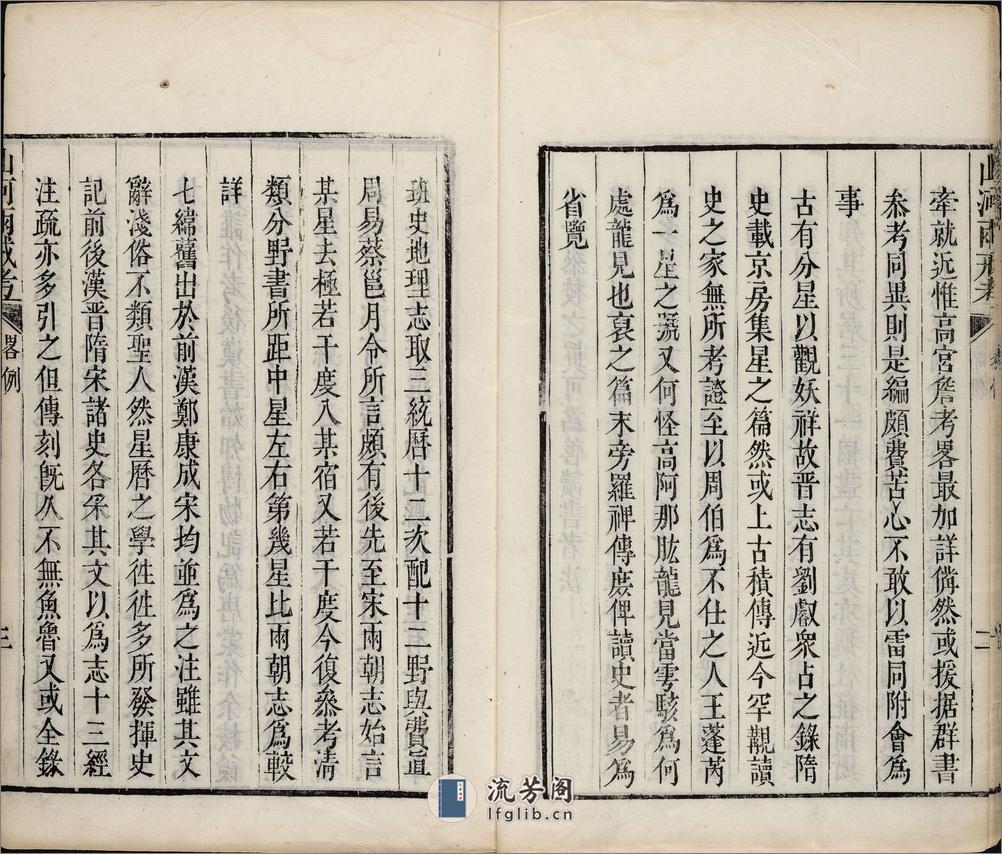 牽就近惟高宮詹考畧最加詳俻然或援据群書
叅考同異則是編頗費苦心不敢以雷同附會爲
事
古有分星以觀妖祥故晋志有劉叡衆占之錄隋
史載京房集星之篇然或上古積傳近今罕覯讀
史之家無所考證至以周伯爲不仕之人王蓬芮
爲一星之號又何怪高阿那肱龍見當雩駭爲何
處龍見也裒之篇末旁羅禆傳庻俾讀史者易爲
省覽
二
班史地理志取三統曆十二次配十二野與費直
周易蔡邕月令所言頗有後先至宋兩朝志始言
某星去極若干度入某宿又若干度今復叅考清
類分野書所距中星左右第幾星比兩朝志爲較
詳
七緯舊出於前漢鄭康成宋均並爲之注雖其文
辭淺俗不類聖人然星曆之學徃徃多所發揮史
記前後漢晋隋宋諸史各采其文以爲志十三經
注疏亦多引之但傳刻旣久不無魚魯又或全錄
山河兩戒考
畧例
三
流芳阁
lfglib.cn